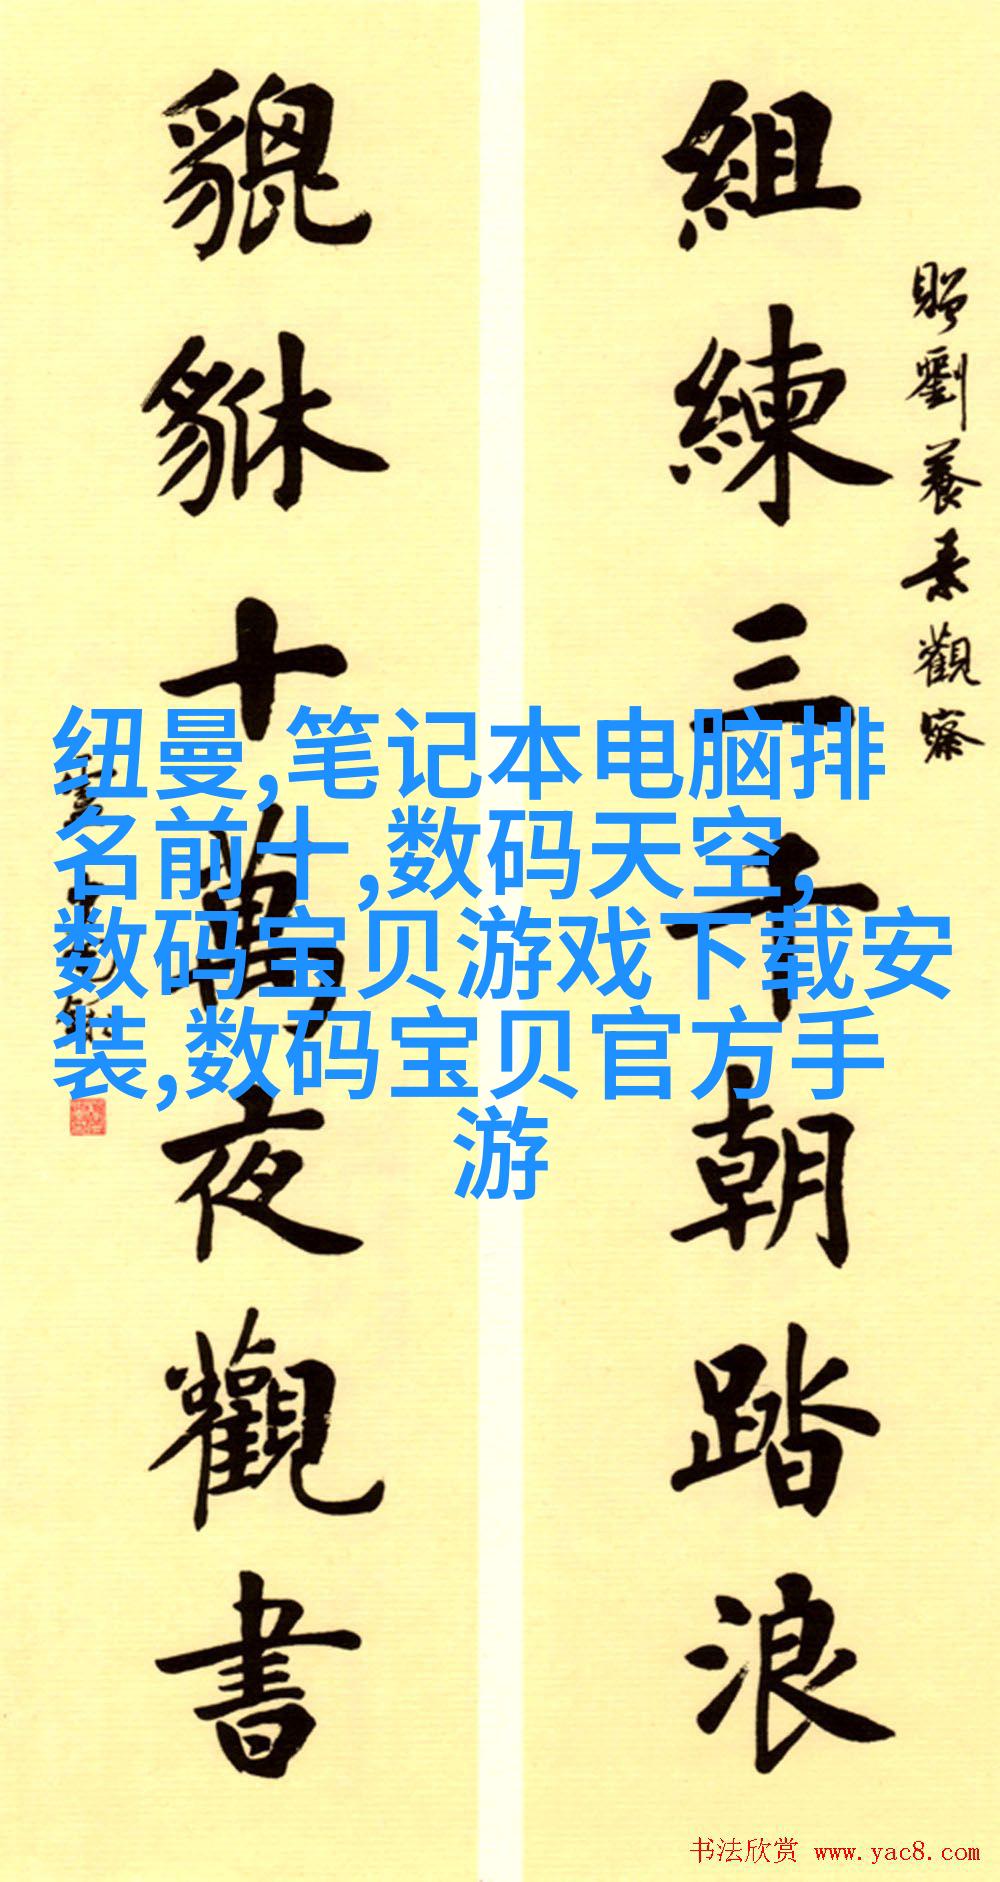 贈劉養素觀察
組練三千朝踏浪
貔貅十萬夜觀書
纽曼,笔记本电脑排
名前十,数码天空,
数码宝贝游戏下载安
装,数码宝贝官方手
游
书法欣赏 www.yac8.com